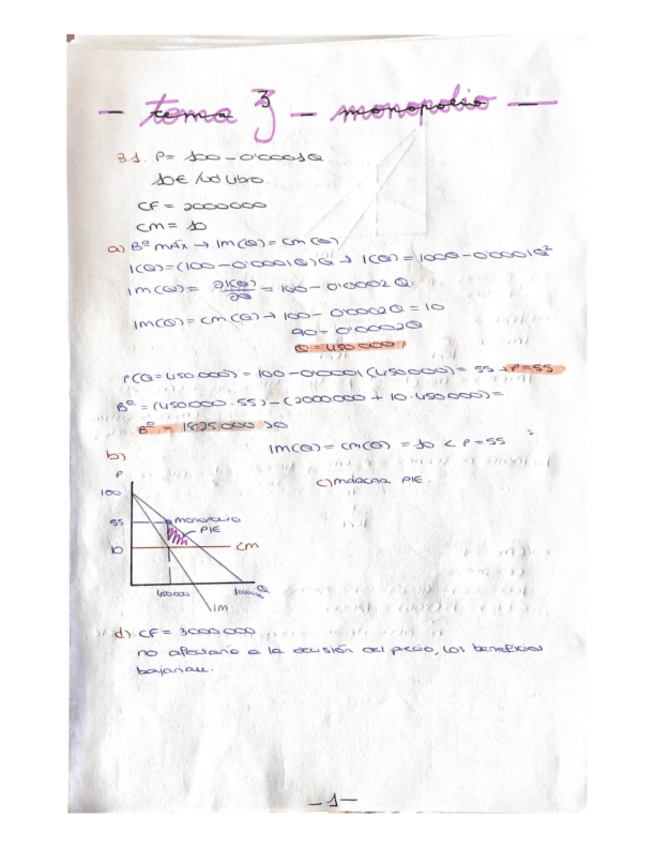 — tema 3 — monopolio —
3.1. P= 100 - 0'0001Q
10€ /ud libro.
CF = 2000000
CM = 10
a) Bº máx → IM(Q) = CM(Q)
I(Q)=(100-0'0001Q)Q → I(Q) = 100Q - 0'0001Q²
IM(Q) = ∂I(Q)/∂Q = 100 - 0'0002Q.
IM(Q) = CM(Q) → 100 - 0'0002Q = 10
90 - 0'0002Q
Q = 450 000
P(Q=450.000) = 100 - 0'0001 (450.000) = 55 → P=55
Bº = (450.000 · 55) - (2000000 + 10 · 450.000) =
Bº = 18'25.000 >0
IM(Q) = CM(Q) = 10 < P=55
b)
c) PIE.
P
100
55
monopolio
PIE
10
CM
Q
IM
d) CF = 3000000
no afectaría a la decisión del precio, los beneficios
bajarían.
—1—